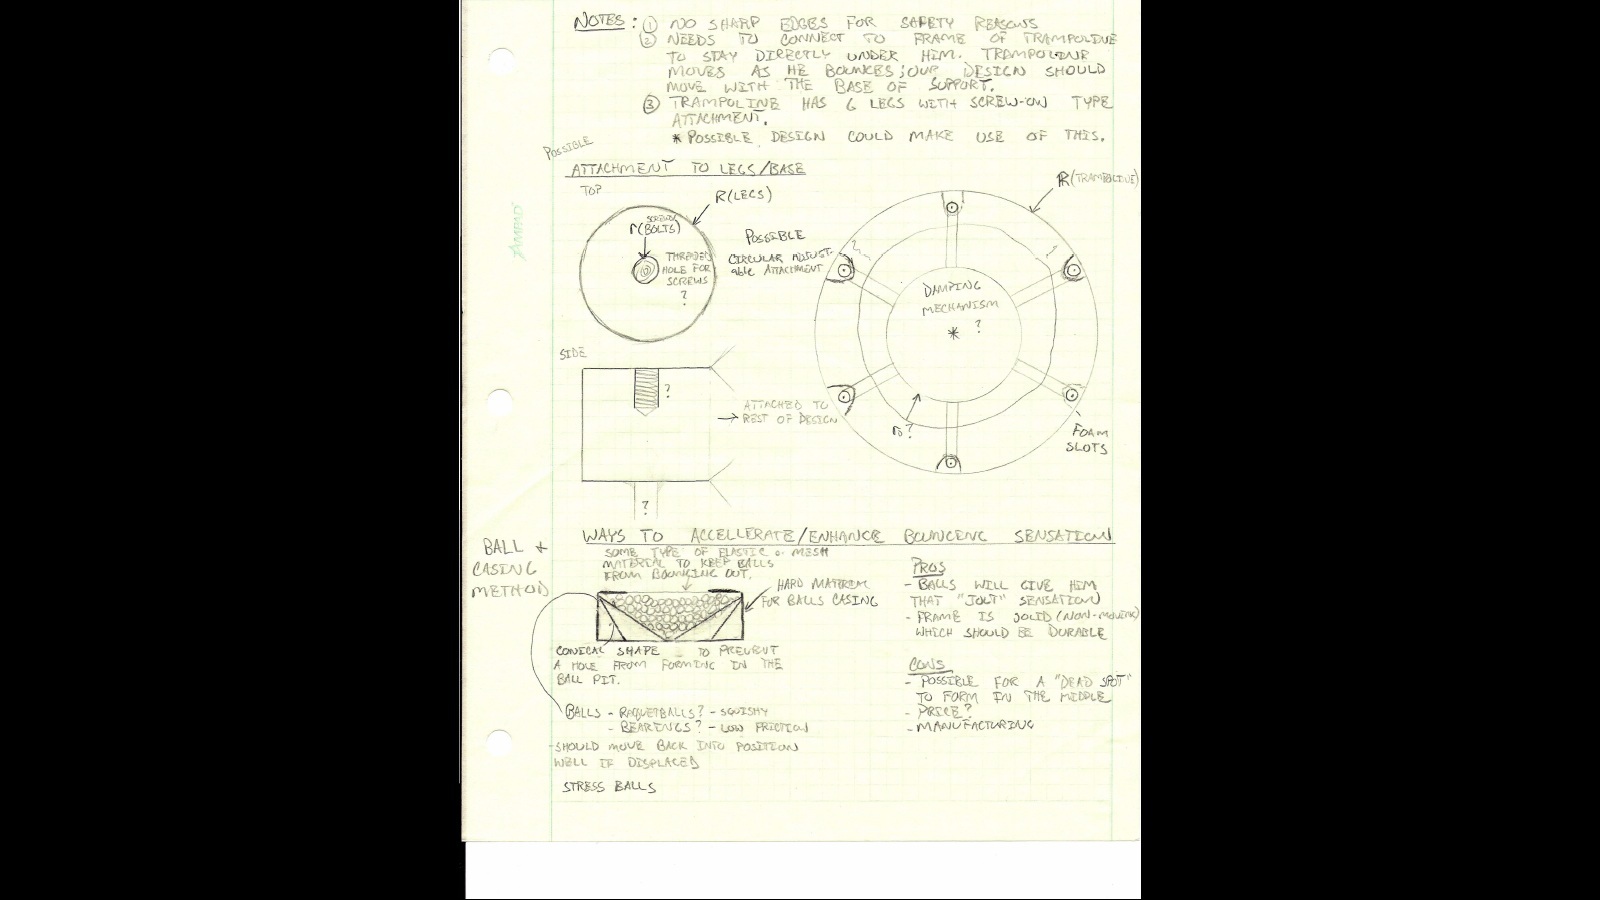 NOTES: ① NO SHARP EDGES FOR SAFETY REASONS
② NEEDS TO CONNECT TO FRAME OF TRAMPOLINE
TO STAY DIRECTLY UNDER HIM. TRAMPOLINE
MOVES AS HE BOUNCES; OUR DESIGN SHOULD
MOVE WITH THE BASE OF SUPPORT.
③ TRAMPOLINE HAS 6 LEGS WITH SCREW-ON TYPE
ATTACHMENT.
* POSSIBLE DESIGN COULD MAKE USE OF THIS.
POSSIBLE
ATTACHMENT TO LEGS/BASE
TOP
R(LEGS)
SCREWS
r(BOLTS)
THREADED
HOLE FOR
SCREWS
?
POSSIBLE
CIRCULAR ADJUST-
able ATTACHMENT
R(TRAMPOLINE)
DAMPING
MECHANISM
* ?
r₀?
FOAM
SLOTS
SIDE
?
→ ATTACHED TO
REST OF DESIGN
?
AMPAD
WAYS TO ACCELLERATE/ENHANCE BOUNCING SENSATION
BALL &
CASING
METHOD
SOME TYPE OF ELASTIC or MESH
MATERIAL TO KEEP BALLS
FROM BOUNCING OUT.
HARD MATERIAL
FOR BALLS CASING
CONICAL SHAPE TO PREVENT
A HOLE FROM FORMING IN THE
BALL PIT.
BALLS - RAQUETBALLS? - SQUISHY
- BEARINGS? - LOW FRICTION
- SHOULD MOVE BACK INTO POSITION
WELL IF DISPLACED
STRESS BALLS
PROS
- BALLS WILL GIVE HIM
THAT "JOLT" SENSATION
- FRAME IS SOLID (NON-MOVING)
WHICH SHOULD BE DURABLE
CONS
- POSSIBLE FOR A "DEAD SPOT"
TO FORM IN THE MIDDLE
- PRICE?
- MANUFACTURING